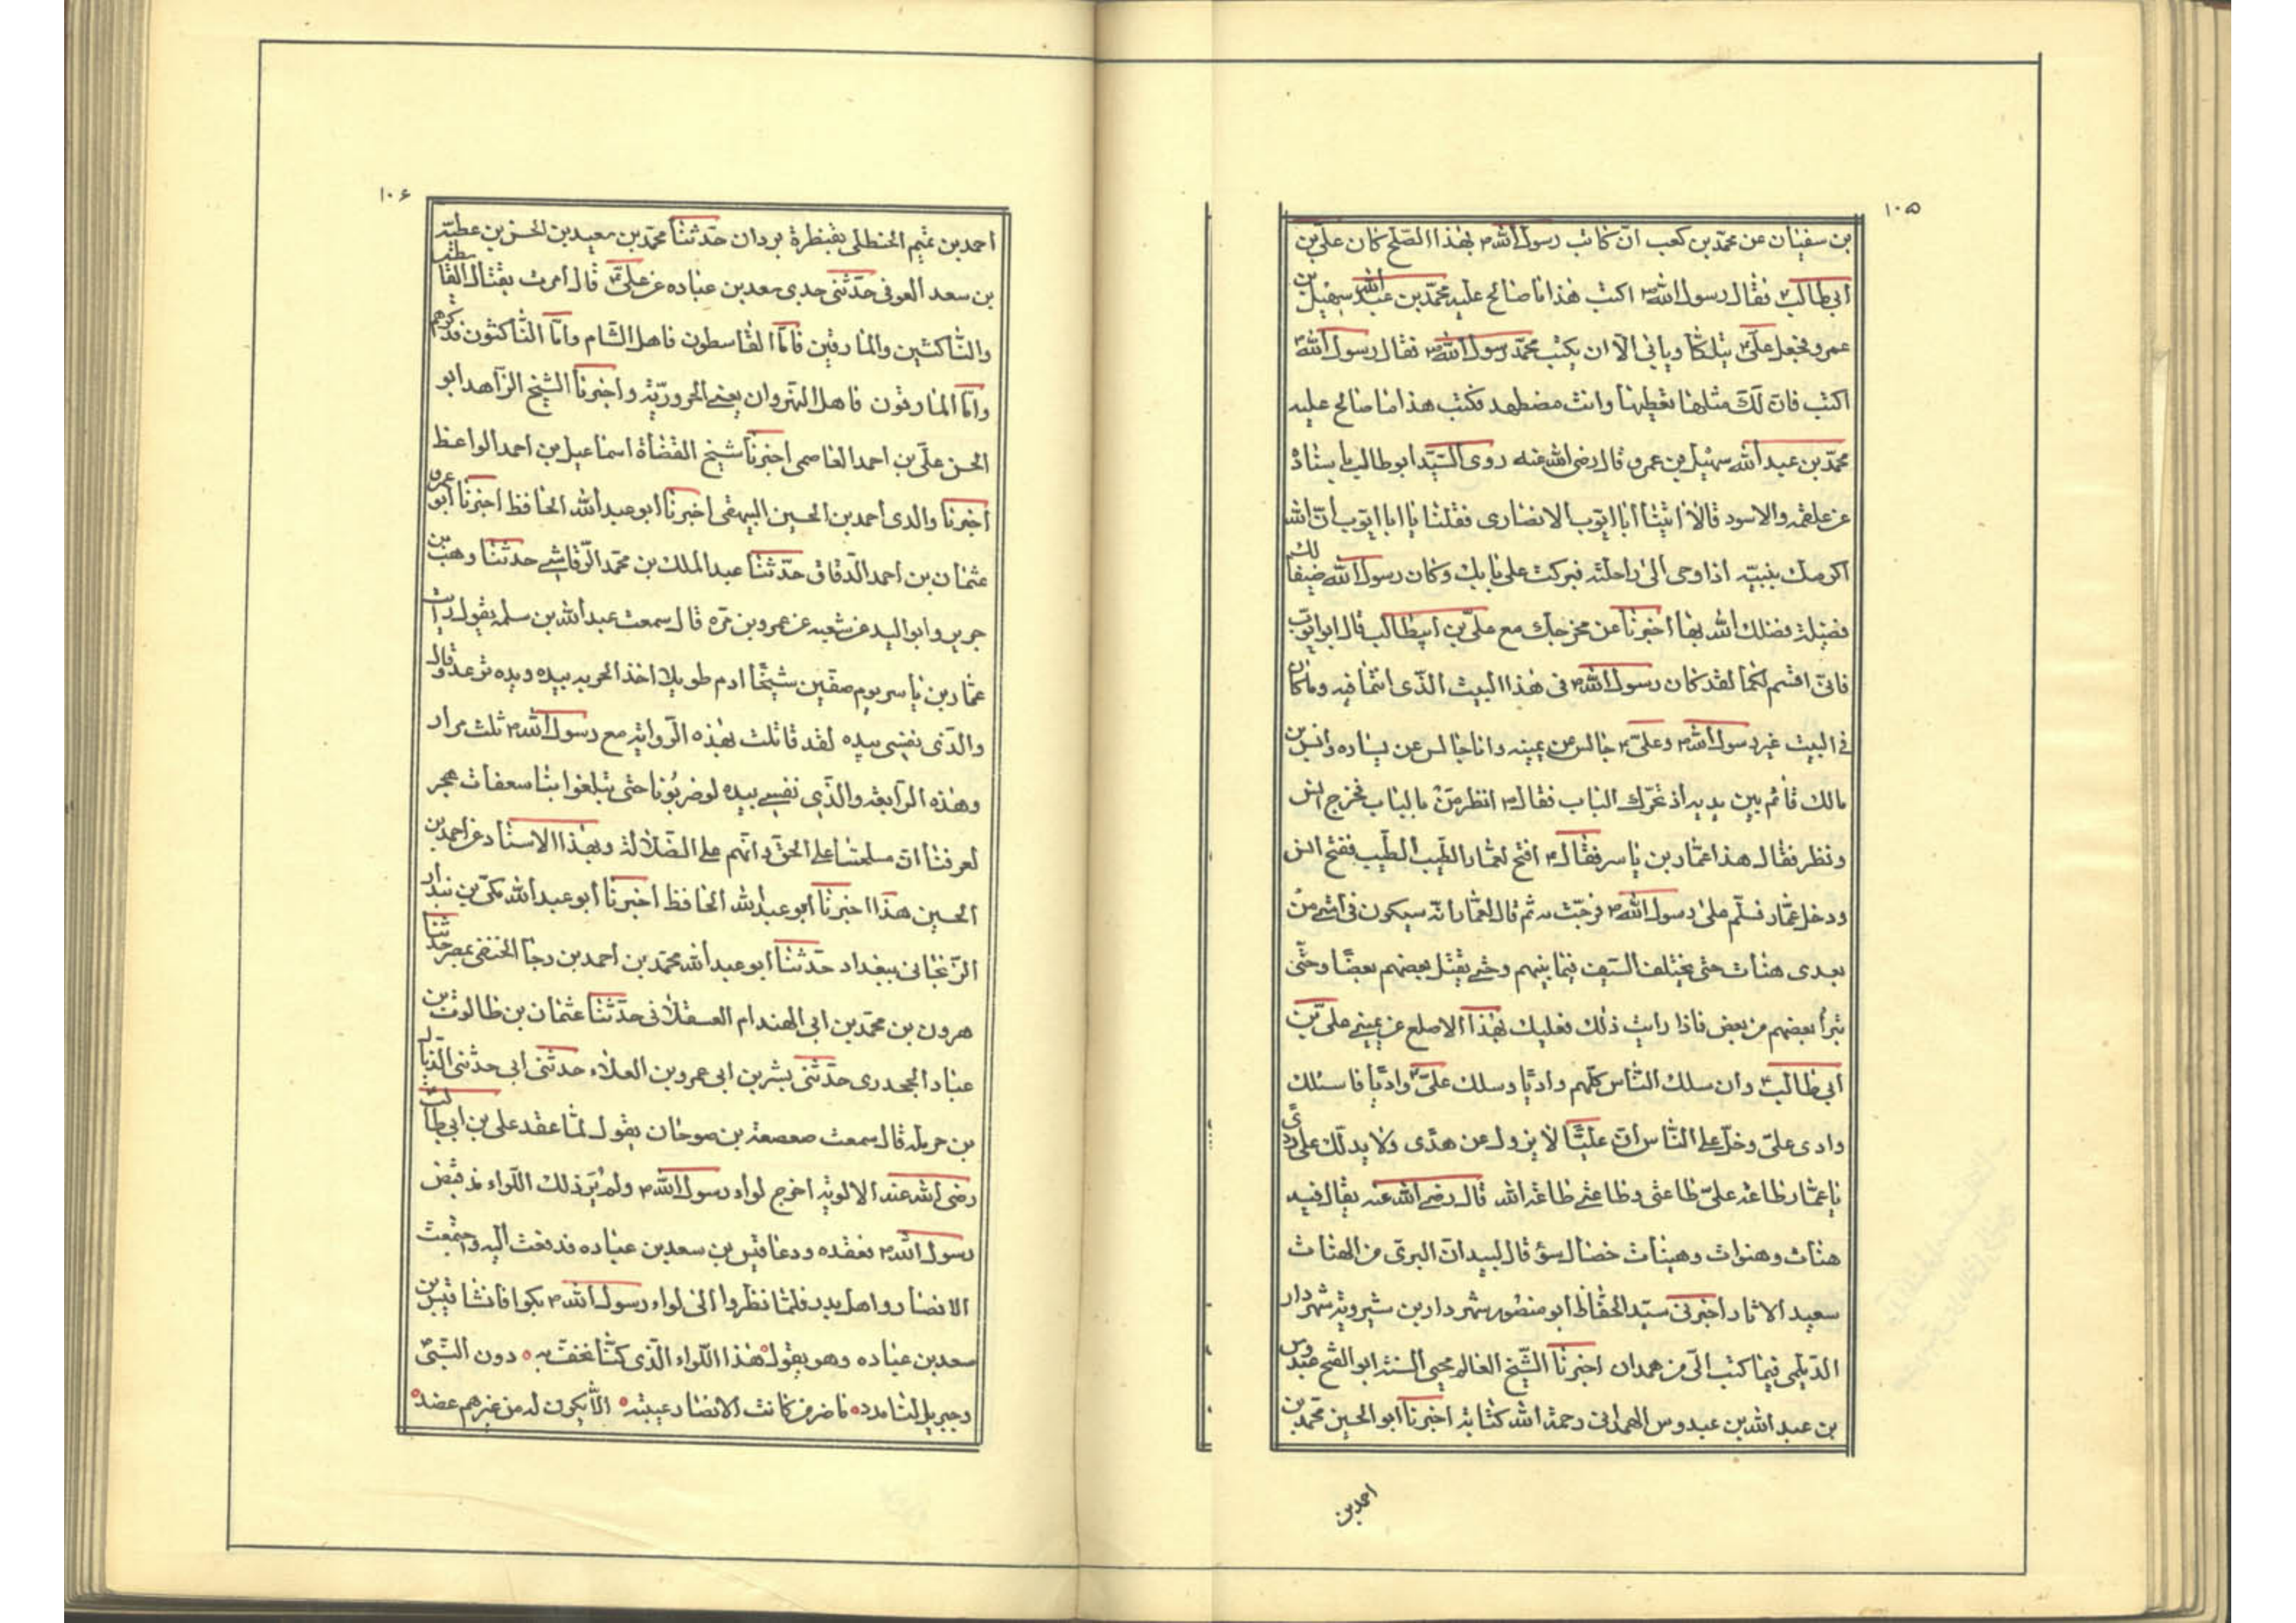 ١٠٥
بن سفيان عن محمّد بن كعب انّ كاتب رسول الله ص بهذا الصّلح كان علي بن
ابي طالب ع فقال رسول الله ص اكتب هذا ما صالح عليه محمّد بن عبد الله سهيل بن
عمرو فجعل علىّ ع يتلكّأ ويابى الّا ان يكتب محمّد رسول الله ص فقال رسول الله ص
اكتب فان لك مثلها تعطيها وانت مضطهد فكتب هذا ما صالح عليه
محمّد بن عبد الله سهيل بن عمرو قال رضى الله عنه روى السّيّد ابو طالب باسناده
عن علقمه والاسود قالا اتينا ابا ايّوب الانصارى فقلنا يا ابا ايّوب انّ الله
اكرمك بنبيّه اذ اوحى الى راحلته فبركت على بابك وكان رسول الله ضيفا لك
فضيلة فضلك الله بها اخبرنا عن مخرجك مع علىّ بن ابيطالب قال ابو ايّوب
فانّى اقسم لكما لقد كان رسول الله ص فى هذا البيت الذّى انتما فيه وما كان
فى البيت غير رسول الله ص وعلىّ ع جالس عن يمينه وانا جالس عن يساره وانس بن
مالك قائم بين يديه اذ تحرّك الباب فقال ص انظر من بالباب فخرج انس
ونظر فقال هذا عمّار بن ياسر فقال ص افتح لعمّار الطّيب الطّيب ففتح انس
ودخل عمّار فسلّم على رسول الله ص فرحّب به ثم قال لعمّار انّه سيكون فى امّتى من
بعدى هنات حتى يختلف السّيف فيما بينهم وحتى يقتل بعضهم بعضًا وحتّى
تبرأ بعضهم من بعض فاذا رايت ذلك فعليك بهذا الاصلع عن يمينى علىّ بن
ابى طالب ع وان سلك النّاس كلّهم واديًا وسلك علىّ ع واديًا فاسلك
وادى علىّ وخلّ على النّاس انّ عليّا لا يزول عن هدًى ولا يدلّك على ردًى
يا عمّار طاعة علىّ طاعتى وطاعتى طاعة الله قال رضى الله عنه يقال فيه
هنات وهنوات وهينات خصال سؤ قال لبيد انّ البرى من الهنات
سعيد الاثار اخبرنى سيّد الحفّاظ ابو منصور شهردار بن شيرويه شهردار
الدّيلمى فيما كتب الىّ من همدان اخبرنا الشّيخ العالم محيى السنّة ابو الفتح عبدوس
بن عبد الله بن عبدوس الهمدانى رحمة الله كتابة اخبرنا ابو الحسين محمّد بن
احمد بن
١٠۶
احمد بن تميم الحنظلى بقنطرة بردان حدّثنا محمّد بن سعيد بن الحسن بن عطيّه
بن سعد العوفى حدّثنى جدى سعد بن عباده عن علىّ ع قال امرت بقتال القاسطين
والنّاكثين والمارقين فامّا القاسطون فاهل الشّام وامّا النّاكثون فذكرهم
وامّا المارقون فاهل النّهروان يعنى الحروريّة واخبرنا الشيخ الزّاهد ابو
الحسن علىّ بن احمد العاصمى اخبرنا شيخ القضاة اسماعيل بن احمد الواعظ
اخبرنا والدى احمد بن الحسين البيهقى اخبرنا ابو عبد الله الحافظ اخبرنا ابو عمرو
عثمان بن احمد الدّقاق حدّثنا عبد الملك بن محمّد الرّقاشى حدّثنا وهب بن
جرير وابو اليد عن شعبه عن عمرو بن مرّه قال سمعت عبد الله بن سلمه يقول رايت
عمّار بن ياسر يوم صفّين شيخًا ادم طويلا اخذ الحربه بيده ويده ترعد وقال
والّذى نفسى بيده لقد قاتلت بهذه الرّوايه مع رسول الله ص ثلث مرار
وهذه الرّابعة والذّى نفسى بيده لو ضربونا حتى تبلغوا بنا سعفات هجر
لعرفنا انّ مسلمنا على الحقّ وانّهم على الضّلالة وبهذا الاسناد عن احمد بن
الحسين هذا اخبرنا ابو عبد الله الحافظ اخبرنا ابو عبد الله مكى بن بندار
الزّنجانى ببغداد حدّثنا ابو عبد الله محمّد بن احمد بن رجا الحنفى بمصر حدّثنا
هرون بن محمّد بن ابى الهندام العسقلانى حدّثنا عثمان بن طالوت بن
عباد الجحدرى حدّثنى بشر بن ابى عمرو بن العلاء حدثنى ابى حدثنى الذّيال
بن حرمله قال سمعت صعصعة بن صوحان يقول لمّا عقد على بن ابى طالب
رضى الله عنه الالوية اخرج لواء رسول الله ص ولم يُر ذلك اللّواء مذ قبض
رسول الله ص فعقده ودعا قيس بن سعد بن عباده فدفعه اليه واجتمعت
الانصار واهل بدر فلمّا نظروا الى لواء رسول الله ص بكوا فانشا قيس بن
سعد بن عباده وهو يقول هذا اللّواء الّذى كنّا نحفّ به دون النّبىّ
وجبريل لنا مدد ما ضرّ من كانت الانصار عيبته الّا يكون له من غيرهم عضد